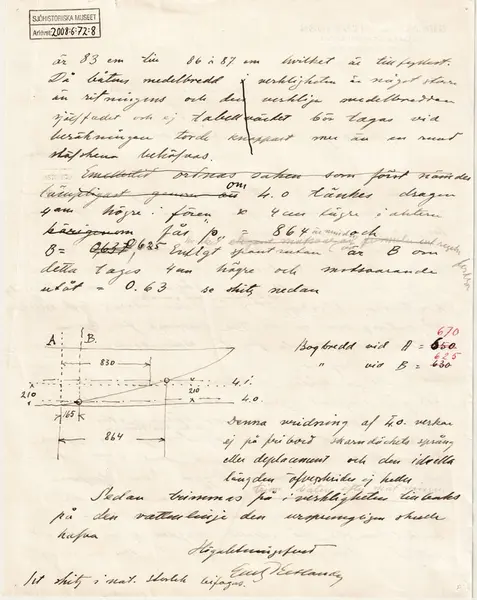 SJÖHISTORISKA MUSEET
Arkivnr. 2008:6:72:8
är 83 cm till 86 à 87 cm hvilket är tillfyllest.
Då båtens medelbredd i verkligheten är något större
än ritningens och den verkliga medelbredden
självfallet och ej tabellvärdet bör tagas vid
beräkningen torde knappast mer än en rund
behöfvas.
ordnas saken som först nämdes
genom om 4.0 tänkes dragen
4 cm högre i fören o 4 cm lägre i aktern
härigenom fås "p" = 864 och
B = 0,637 0,625 Enligt är B om
detta tages 4 cm högre och motsvarande
utåt = 0.63 se skitz nedan
A B.
830
210
210
4.1.
4.0.
165
864
670
Bogbredd vid A = 650
625
" vid B = 630
Denna vridning af 4.0. verkar
ej på fribord skarndäckets språng
eller deplacement och den ideella
längden öfverskrides ej heller
Sedan trimmas på i verkligheten tillbaka
på den vattenlinje den ursprungligen skulle
hafva
Högaktningsfullt
1 st skitz i nat. storlek bifogas.